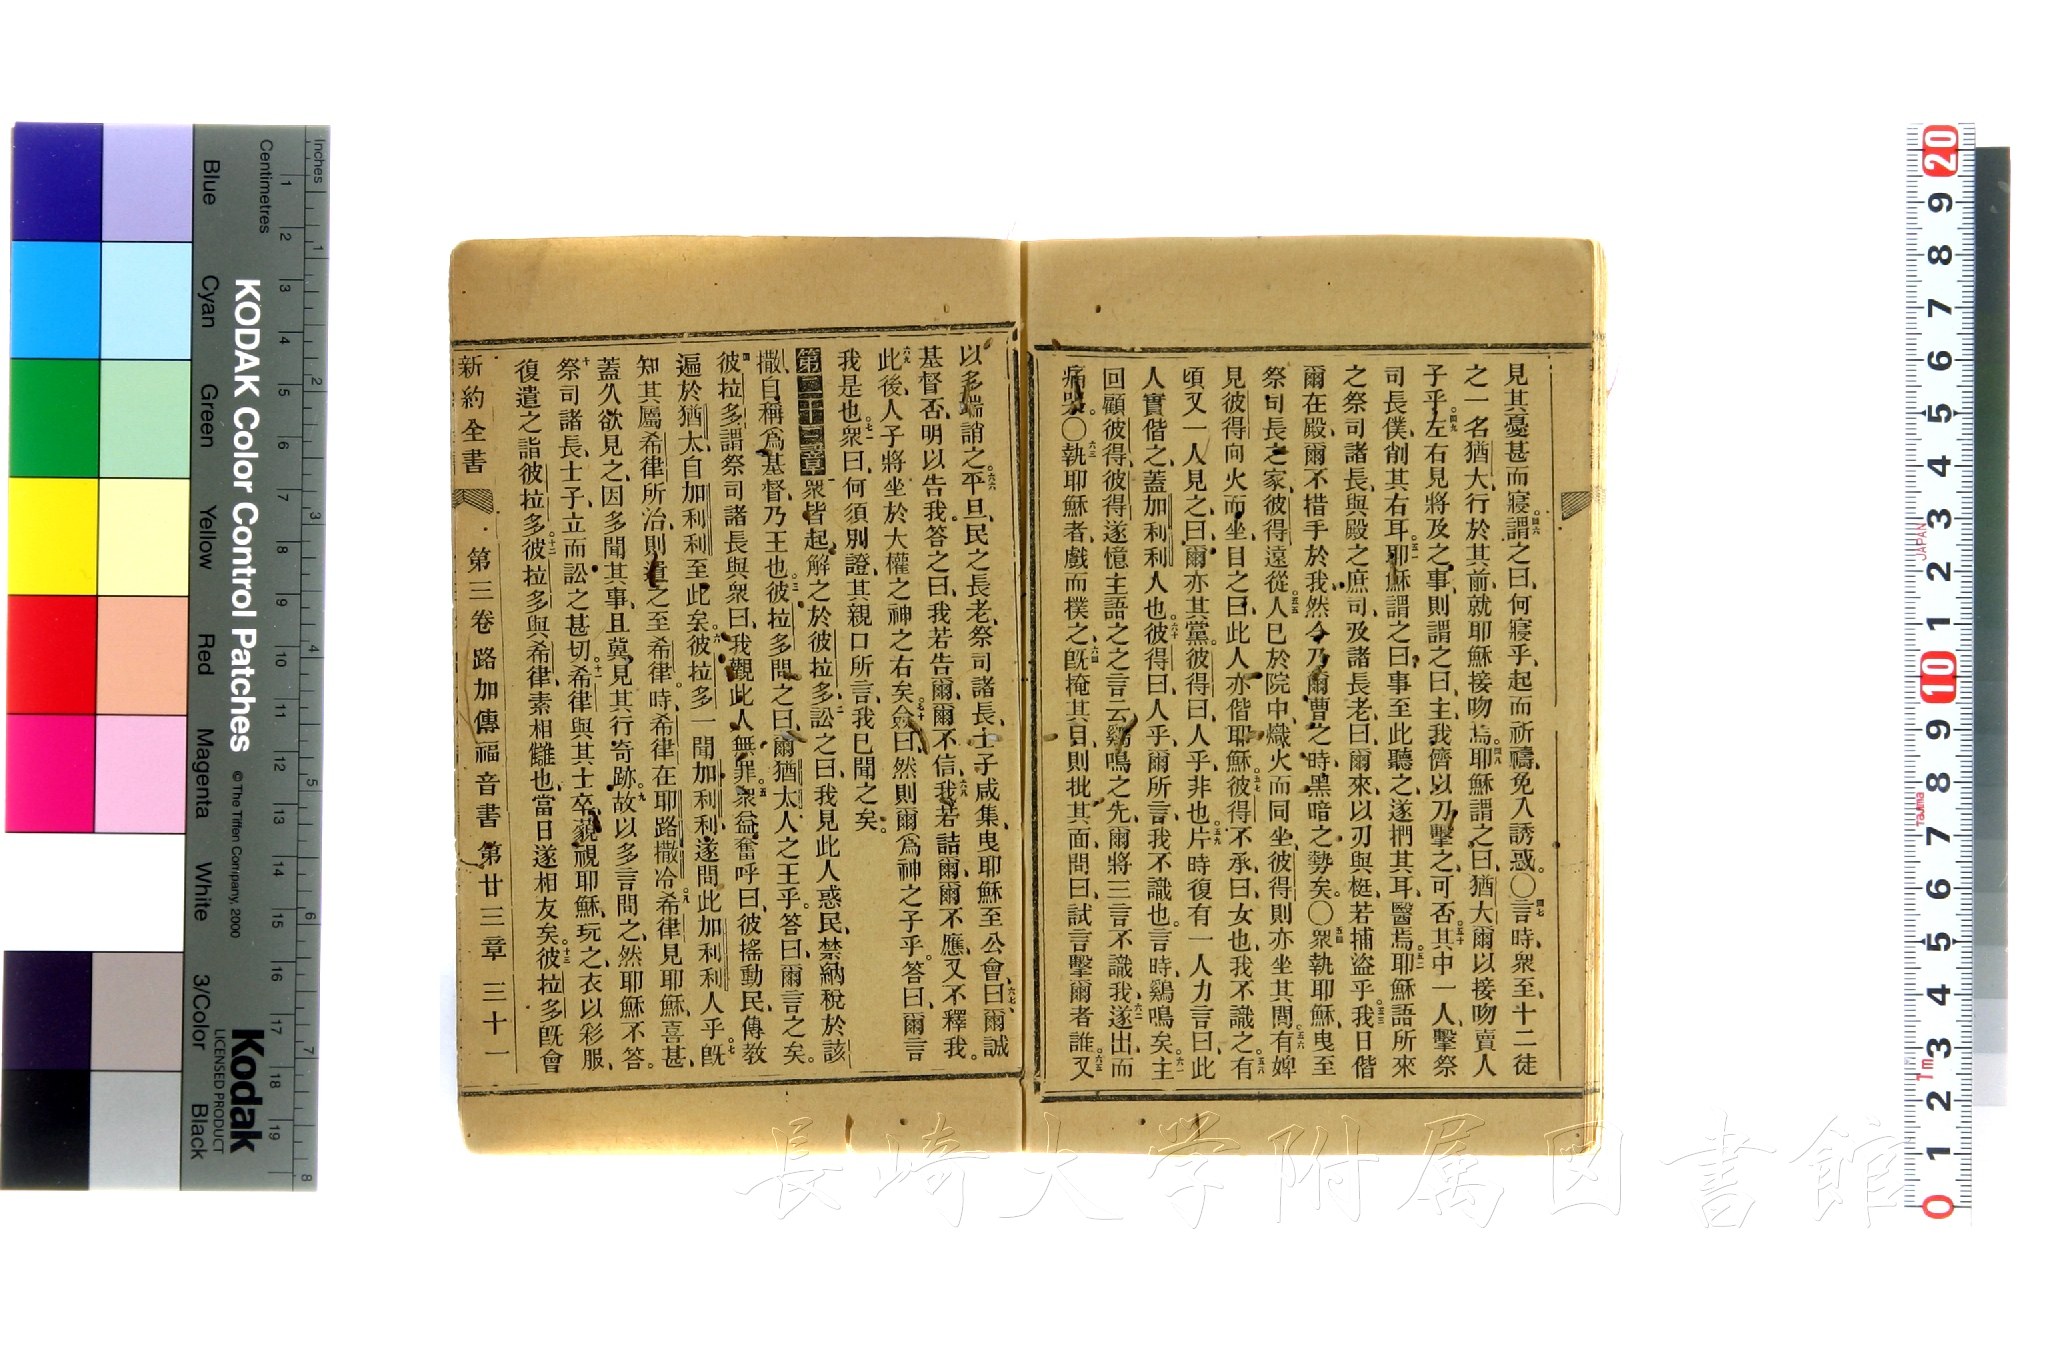 見其憂甚而寢、四六謂之曰、何寢乎、起而祈禱、免入誘惑。〇四七言時、衆至、十二徒
之一名猶大、行於其前、就耶穌接吻焉、四八耶穌謂之曰、猶大爾以接吻賣人
子乎。四九左右見將及之事、則謂之曰、主、我儕以刀擊之可否。五十其中一人、擊祭
司長僕、削其右耳。五一耶穌謂之曰、事至此聽之、遂捫其耳、醫焉。五二耶穌語所來
之祭司諸長、與殿之庶司、及諸長老曰、爾來、以刃與梃、若捕盜乎。五三我日偕
爾在殿、爾不措手於我、然今乃爾曹之時、黑暗之勢矣。〇五四衆執耶穌、曳至
祭司長之家、彼得遠從。五五人已於院中、熾火而同坐、彼得則亦坐其間。五六有婢
見彼得向火而坐、目之曰、此人亦偕耶穌。五七彼得不承曰、女也、我不識之。五八有
頃又一人見之、曰、爾亦其黨。彼得曰、人乎、非也。五九片時、復有一人力言曰、此
人實偕之、蓋加利利人也。六十彼得曰、人乎、爾所言、我不識也。言時、鷄鳴矣。六一主
回顧彼得、彼得遂憶主語之之言云、鷄鳴之先、爾將三言不識我、六二遂出而
痛哭。〇六三執耶穌者、戲而撲之、六四旣掩其目、則批其面、問曰、試言擊爾者誰、六五又
以多端誚之。六六平旦、民之長老、祭司諸長、士子咸集、曳耶穌至公會、曰、六七爾誠
基督否、明以告我。答之曰、我若告爾、爾不信、六八我若詰爾、爾不應、又不釋我。
六九此後、人子將坐於大權之神之右矣。七十僉曰、然則爾爲神之子乎。答曰、爾言
我是也。七一衆曰、何須別證、其親口所言、我已聞之矣。
第二十三章 一衆皆起、解之於彼拉多、二訟之曰、我見此人惑民、禁納稅於該
撒、自稱爲基督、乃王也。三彼拉多問之曰、爾猶太人之王乎。答曰、爾言之矣。
四彼拉多謂祭司諸長與衆曰、我觀此人無罪。五衆益奮呼曰、彼搖動民、傳教
遍於猶太、自加利利至此矣。六彼拉多一聞加利利、遂問此加利利人乎。七旣
知其屬希律所治、則遣之至希律時、希律在耶路撒冷。八希律見耶穌、喜甚、
蓋久欲見之、因多聞其事、且冀見其行奇跡。九故以多言問之、然耶穌不答。
十祭司諸長、士子、立而訟之甚切。十一希律與其士卒藐視耶穌、玩之、衣以彩服、
復遣之詣彼拉多。十二彼拉多與希律、素相讎也、當日遂相友矣。十三彼拉多旣會
新約全書 第三卷 路加傳福音書 第廿三章 三十一
KODAK Color Control Patches
© The Tiffen Company, 2000
Kodak
LICENSED PRODUCT
Inches 1 2 3 4 5 6 7 8
Centimetres 1 2 3 4 5 6 7 8 9 10 11 12 13 14 15 16 17 18 19
Blue Cyan Green Yellow Red Magenta White 3/Color Black
20 9 8 7 6 5 4 3 2 1 10 9 8 7 6 5 4 3 2 1 0
JAPAN
Tajima
1m
長崎大学附属図書館